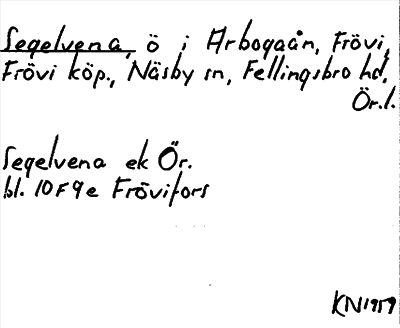 Segelvena, ö i Arbogaån, Frövi,
Frövi köp., Näsby sn, Fellingsbro hd,
Ör.l.
Segelvena ek Ör.
bl. 10F9e Frövifors
KN1959